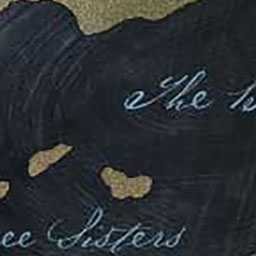 The
ee Sisters